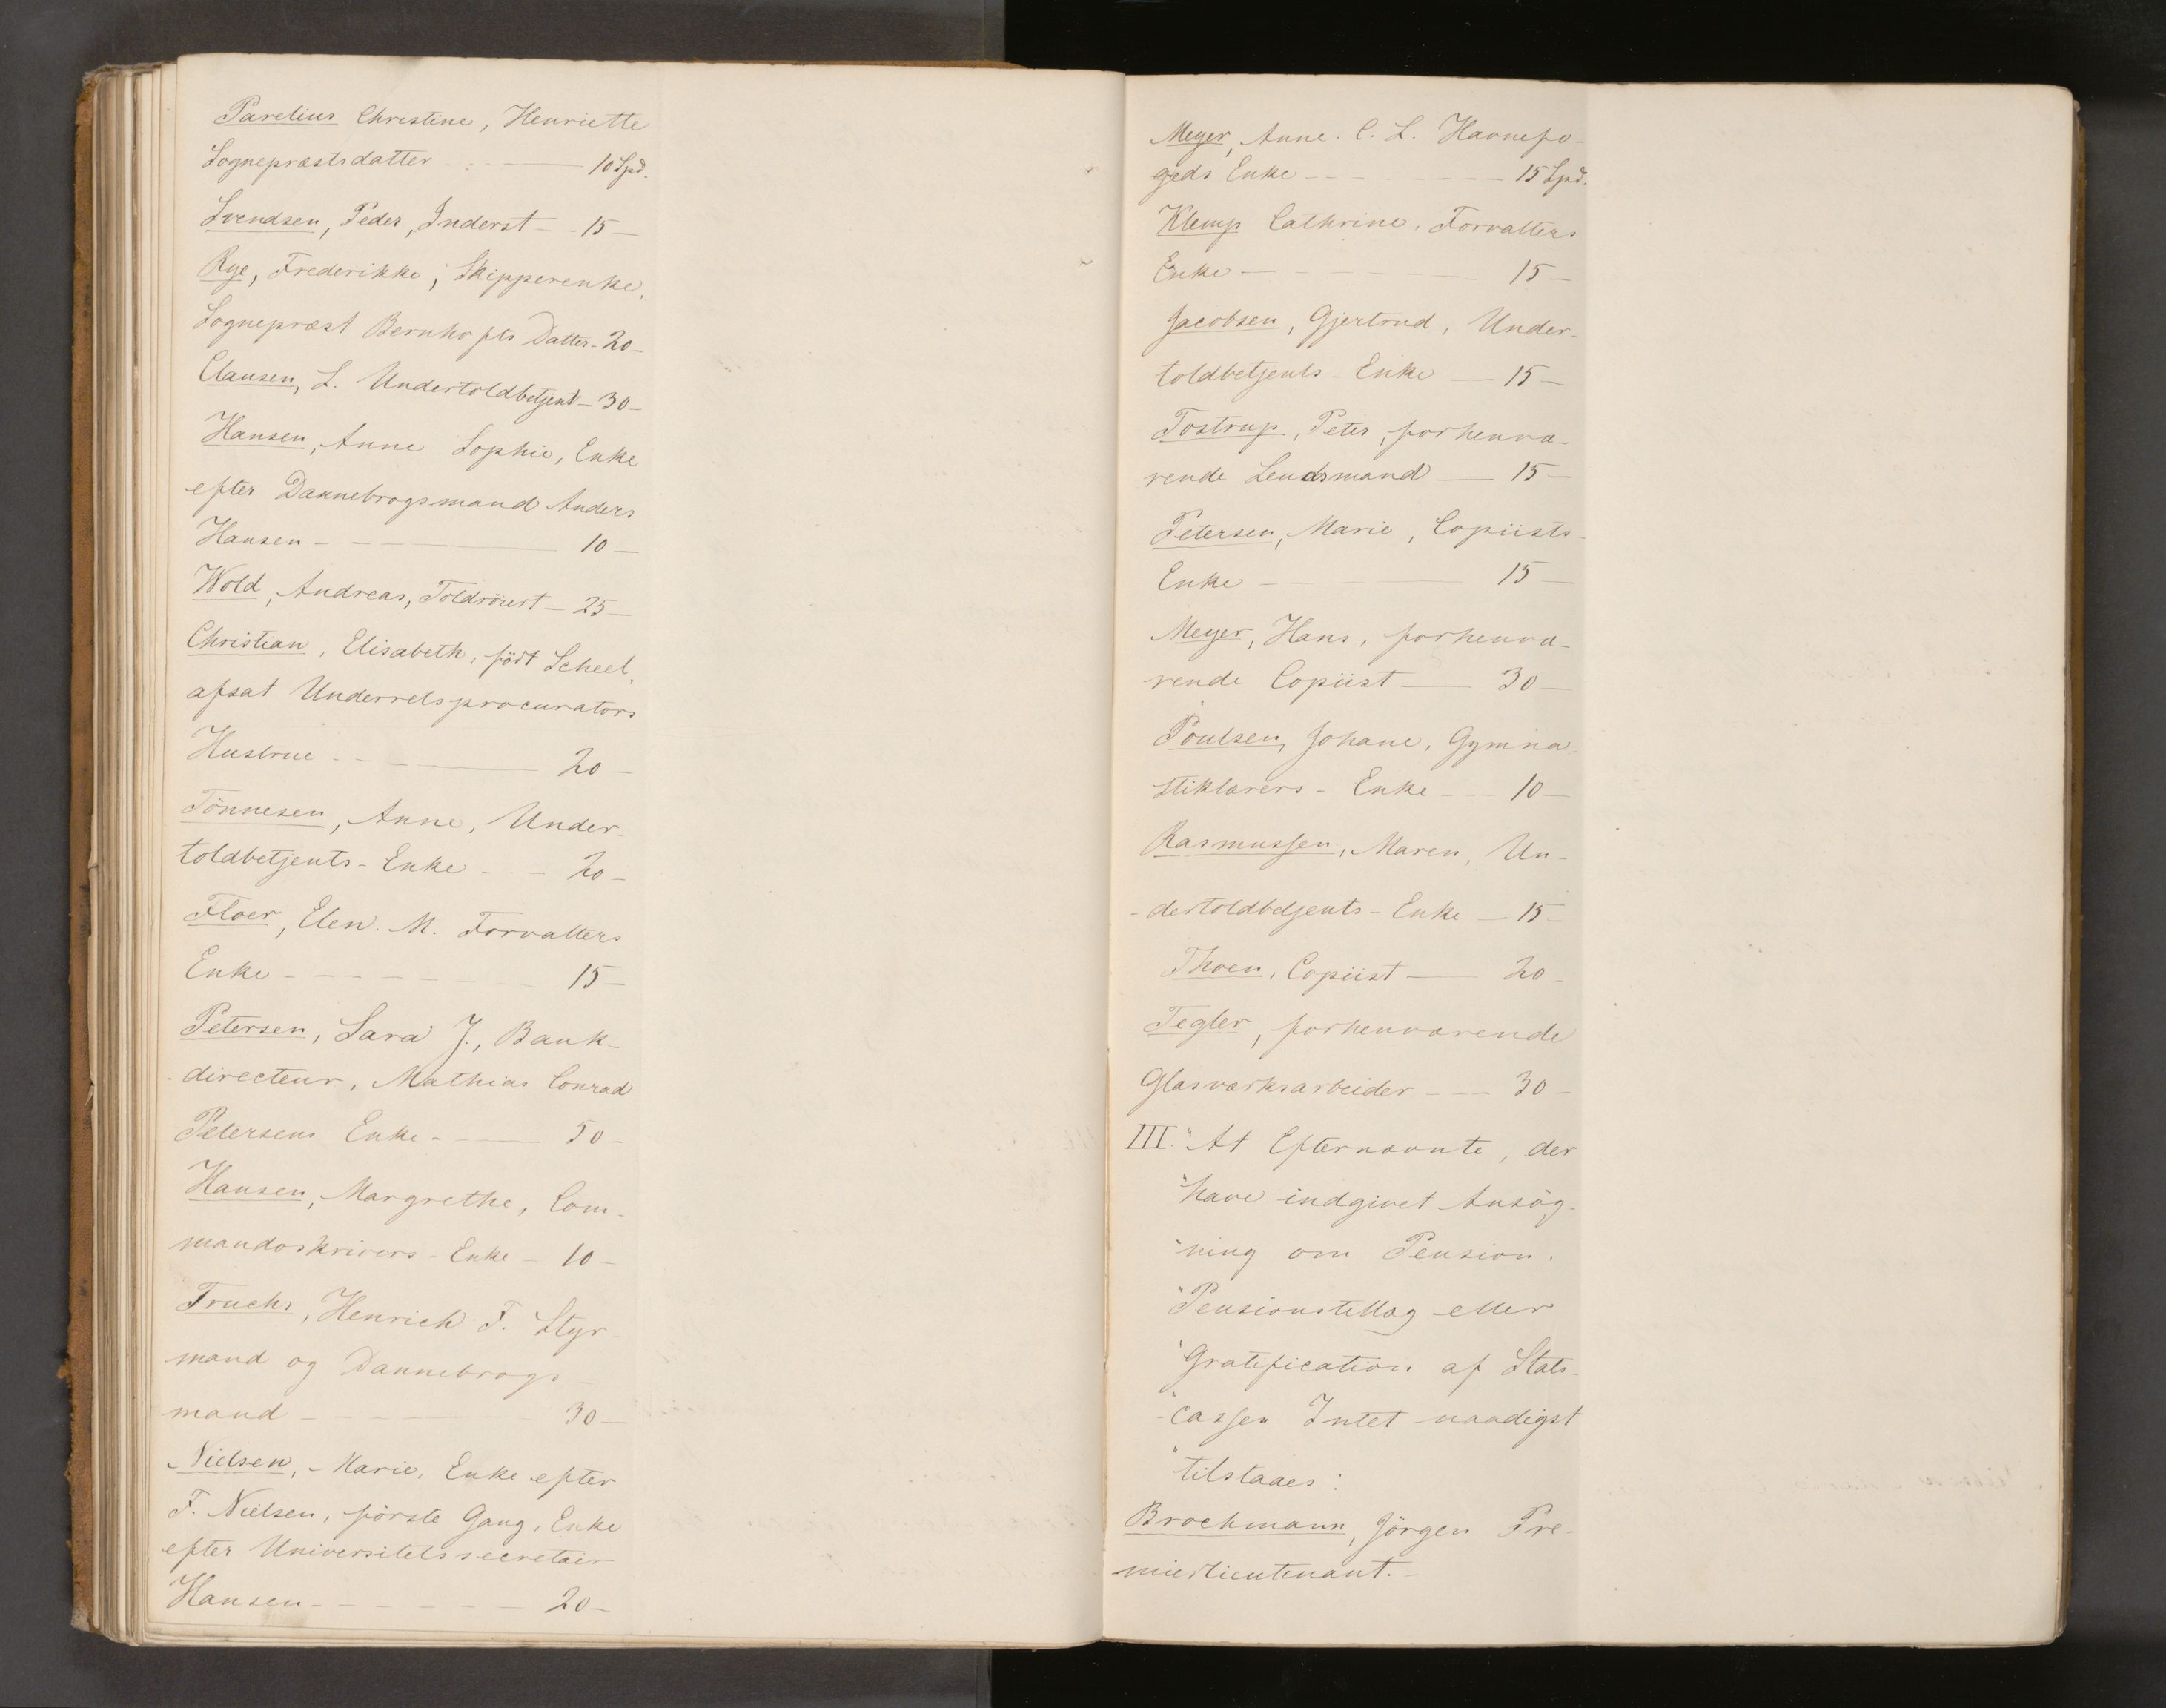 Parelius Christine, Henriette
Sognepræstsdatter - - — 10 Spd.
Svendsen, Peder, Inderst - - 15 —
Rye, Frederikke, Skipperenke,
Sognepræst Bernhofts Datter - 20 -
Clausen, L. Undertoldbetjent - 30 -
Hansen, Anne Sophie, Enke
efter Dannebrogsmand Anders
Hansen - - — 10 —
Wold, Andreas, Toldröiert - 25 —
Christian, Elisabeth, födt Scheel,
afsat Underretsprocurators
Hustrue - - — 20 —
Tönnesen, Anne, Under-
toldbetjents - Enke - - - 20 -
Floer, Elen. M. Forvalters
Enke - - - - - 15 —
Petersen, Sara J., Bank-
directeur, Mathias Conrad
Petersens Enke - — 50 -
Hansen, Margrethe, Com-
mandoskrivers - Enke - 10 -
Fruchs, Henrich F. Styr-
mand og Dannebrogs-
mand - - - - 30 —
Nielsen, Marie, Enke efter
F. Nielsen, förste Gang, Enke
efter Universitetssecretair
Hansen - - - - - 20 -
Meyer, Anne. C. L. Havnefo-
geds Enke - - - - — 15 Spd.
Klemp Cathrine, Forvalters
Enke — - - - - 15 —
Jacobsen, Gjertrud, Under-
toldbetjents - Enke — 15 —
Tostrup, Peter, forhenvæ-
rende Lendsmand — 15 —
Petersen, Marie, Copiists-
Enke - - — 15 —
Meyer, Hans, forhenvæ-
rende Copiist — 30 —
Poulsen, Johane, Gymna-
stiklærers - Enke - - - 10 —
Rasmussen, Maren, Un-
- dertoldbetjents - Enke — 15 —
Thoen, Copiist — 20 -
Tegler, forhenværende
Glasværksarbeider - — 30 -
III. "At Efternævnte, der
"have indgivet Ansög-
"ning om Pension.
"Pensionstillæg eller
"Gratification af Stats-
"cassen Intet naadigst
"tilstaaes:
Brochmann, Jörgen Pre-
mierlieutenant. -